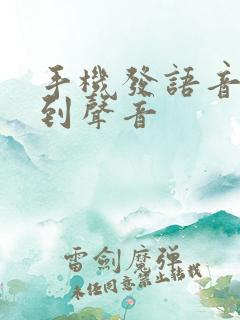 手機發語音
到聲音
雷劍魔彈
未經同意禁止轉載